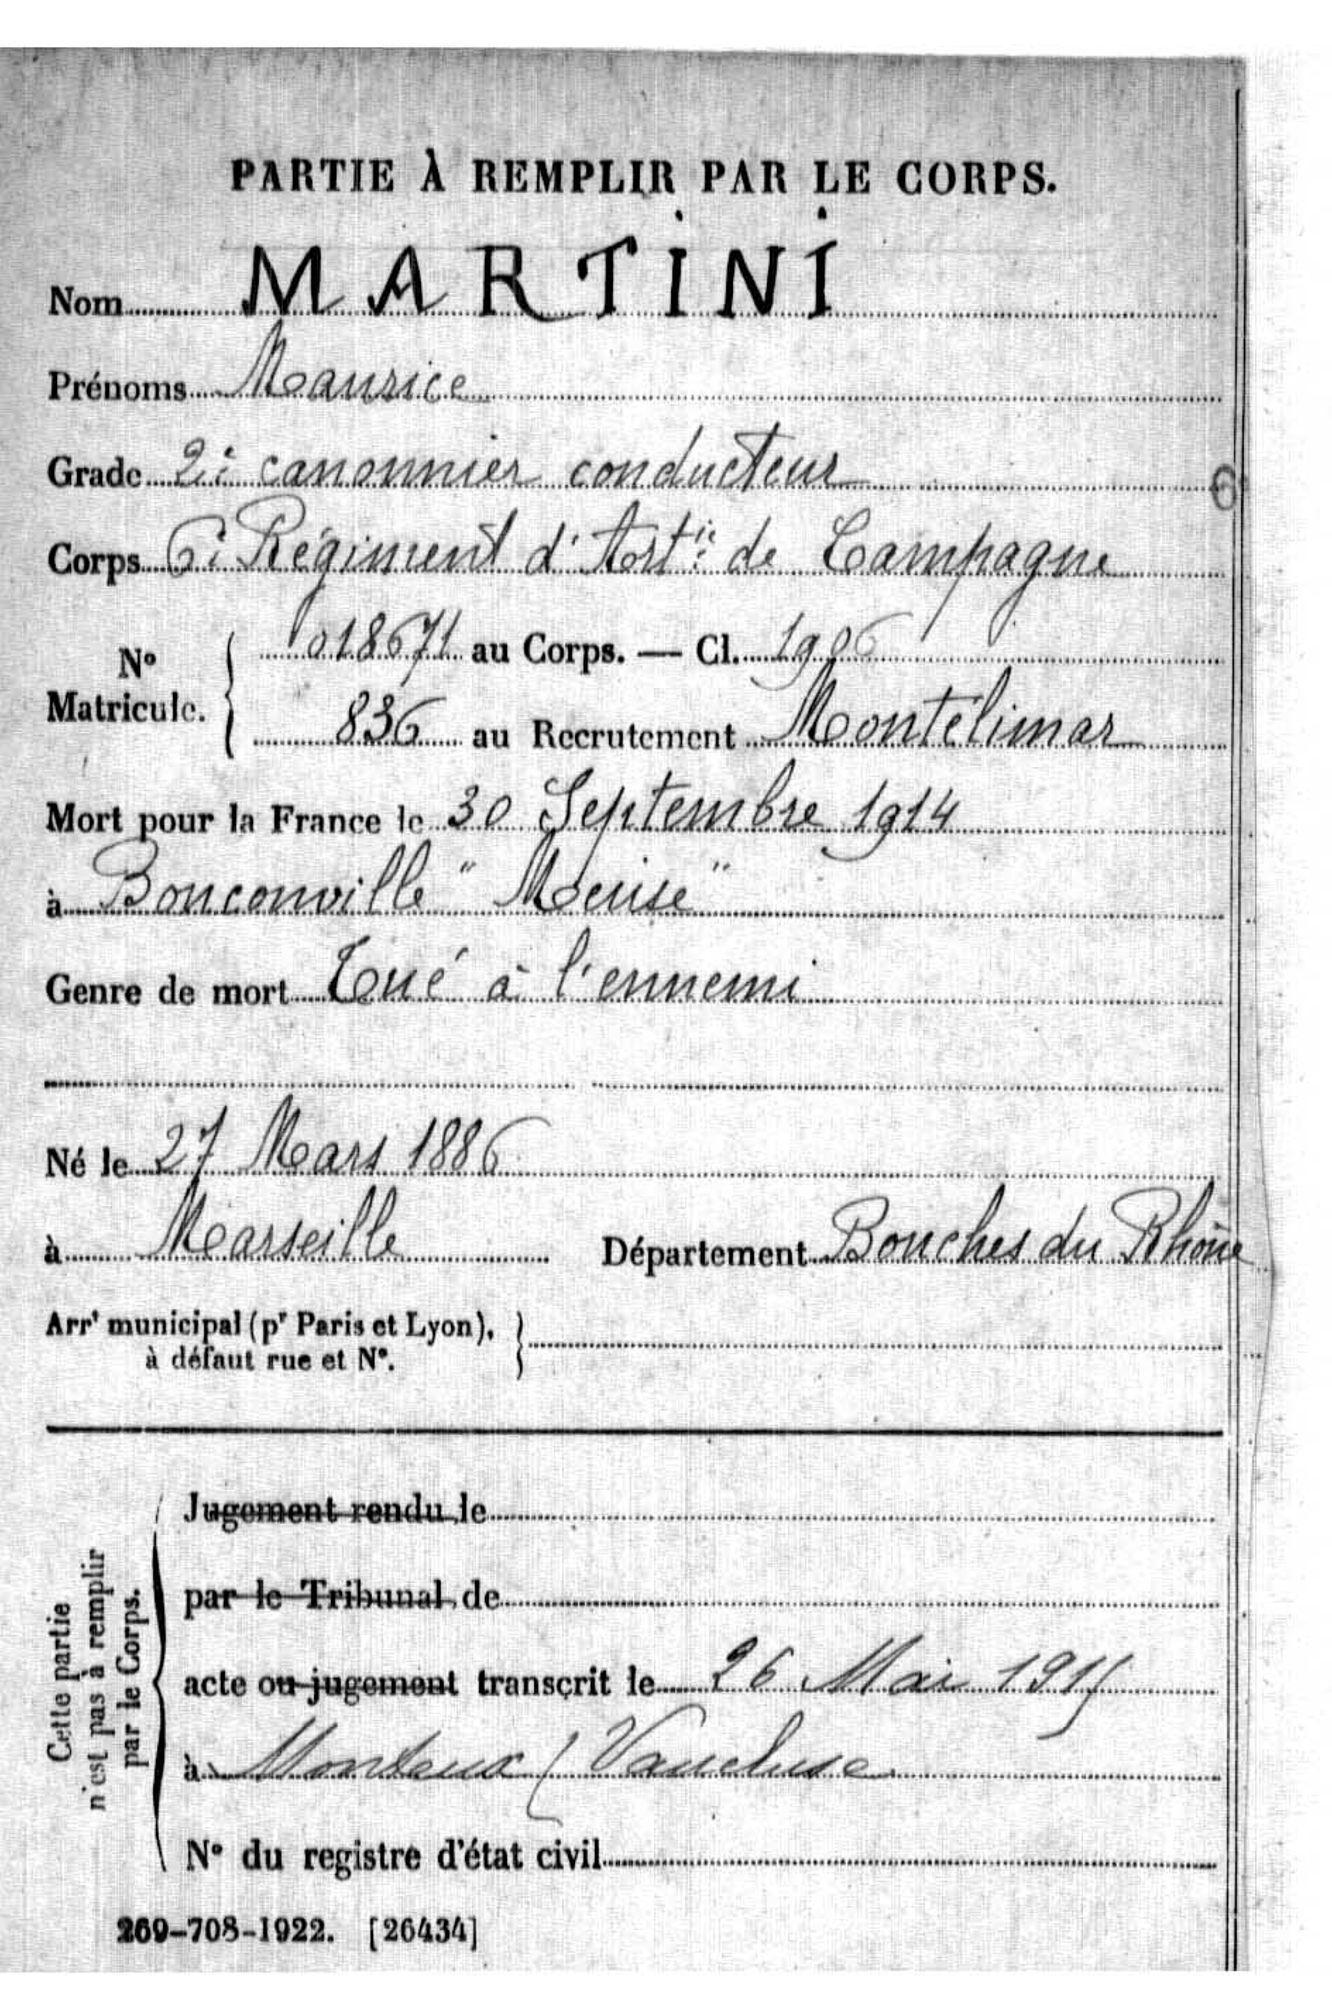 PARTIE À REMPLIR PAR LE CORPS.
Nom MARTINI
Prénoms Maurice
Grade 2è canonnier conducteur
6
Corps 6è Régiment d'Artie de Campagne
No Matricule. { 018671 au Corps. — Cl. 1906
836 au Recrutement Montélimar
Mort pour la France le 30 Septembre 1914
à Bouconville "Meuse"
Genre de mort Tué à l'ennemi
Né le 27 Mars 1886
à Marseille Département Bouches du Rhône
Arrt municipal (pr Paris et Lyon), }
à défaut rue et No.
Cette partie
n'est pas à remplir
par le Corps.
Jugement rendu le
par le Tribunal de
acte ou jugement transcrit le 26 Mai 1915
à Monteux (Vaucluse
No du registre d'état civil
269-708-1922. [26434]